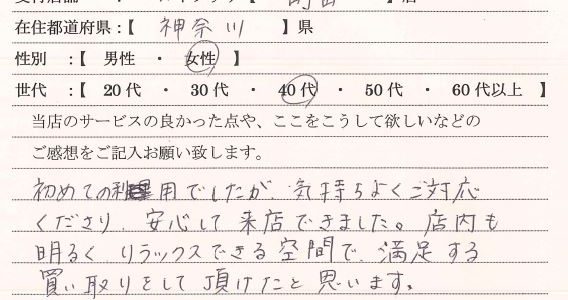 在住都道府県：【 神奈川 】県
性別 ：【 男性 ・ 女性 】
世代 ：【 20代 ・ 30代 ・ 40代 ・ 50代 ・ 60代以上 】
当店のサービスの良かった点や、ここをこうして欲しいなどの
ご感想をご記入お願い致します。
初めての利用でしたが、気持ちよくご対応
くださり、安心して来店できました。店内も
明るく リラックスできる空間で、満足する
買い取りをして頂けたと思います。